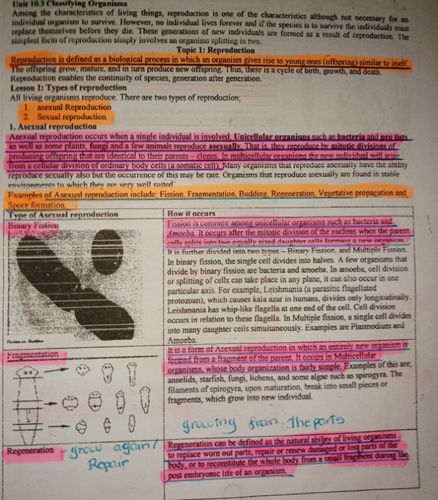 Unit 10.3 Classifying Organisms
Among the characteristics of living things, reproduction is one of the characteristics although not necessary for an
individual organism to survive. However, no individual lives forever and if the species is to survive the individuals must
replace themselves before they die. These generations of new individuals are formed as a result of reproduction. The
simplest form of reproduction simply involves an organism splitting in two.
Topic 1: Reproduction
Reproduction is defined as a biological process in which an organism gives rise to young ones (offspring) similar to itself.
The offspring grow, mature, and in turn produce new offspring. Thus, there is a cycle of birth, growth, and death.
Reproduction enables the continuity of species, generation after generation.
Lesson 1: Types of reproduction
All living organisms reproduce. There are two types of reproduction;
1. asexual Reproduction
2. Sexual reproduction
1. Asexual reproduction
Asexual reproduction occurs when a single individual is involved. Unicellular organisms such as bacteria and protists
as well as some plants, fungi and a few animals reproduce asexually. That is, they reproduce by mitotic divisions of
producing offspring that are identical to their parents – clones. In multicellular organisms the new individual will arise
from a cellular division of ordinary body cells (a somatic cell). Many organisms that reproduce asexually have the ability
reproduce sexually also but the occurrence of this may be rare. Organisms that reproduce asexually are found in stable
environments to which they are very well suited.
Examples of Asexual reproduction include: Fission, Fragmentation, Budding, Regeneration, Vegetative propagation and
Spore formation.
Type of Asexual reproduction
How it occurs
Binary Fission
Fission is common among unicellular organisms such as bacteria and
Amoeba. It occurs after the mitotic division of the nucleus when the parent
cells splits into two equally sized daughter cells forming a new organism.
It is further divided into two types – Binary Fission, and Multiple Fission.
In binary fission, the single cell divides into halves. A few organisms that
divide by binary fission are bacteria and amoeba. In amoeba, cell division
or splitting of cells can take place in any plane, it can also occur in one
particular axis. For example, Leishmania (a parasitic flagellated
protozoan), which causes kala azar in humans, divides only longitudinally.
Leishmania has whip-like flagella at one end of the cell. Cell division
occurs in relation to these flagella. In Multiple fission, a single cell divides
into many daughter cells simultaneously. Examples are Plasmodium and
Amoeba.
Fragmentation
It is a form of Asexual reproduction in which an entirely new organism is
formed from a fragment of the parent. It occurs in Multicellular
organisms, whose body organization is fairly simple. Examples of this are;
annelids, starfish, fungi, lichens, and some algae such as spirogyra. The
filaments of spirogyra, upon maturation, break into small pieces or
fragments, which grow into new individual.
growing from the parts
Regeneration - grow again/
Repair
Regeneration can be defined as the natural ability of living organisms
to replace worn out parts, repair or renew damaged or lost parts of the
body, or to reconstitute the whole body from a small fragment during the
post embryonic life of an organism.